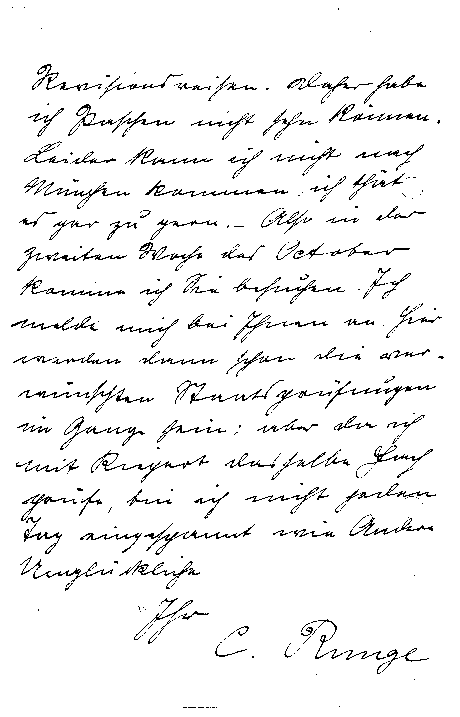 Revisionsreisen. Daher habe
ich Paschen nicht sehn können.
Leider kann ich nicht nach
München kommen, ich thät
es gar zu gern. – Also in der
zweiten Woche des October
komme ich Sie besuchen. Ich
melde mich bei Ihnen an. Hier
werden dann schon die ver-
wünschten Staatsprüfungen
im Gange sein; aber da ich
mit Kiepert dasselbe Fach
prüfe, bin ich nicht jeden
Tag eingespannt wie Andere
Unglückliche
Ihr
C. Runge